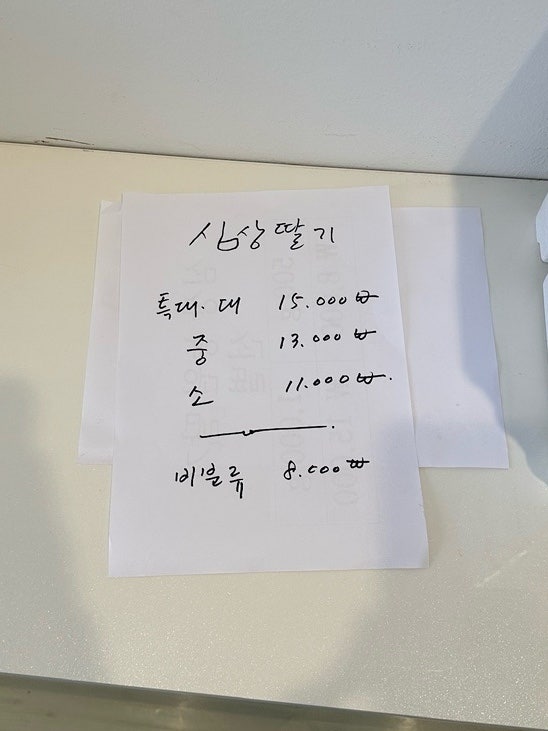 싱싱딸기
특대·대 15.000₩
중 13.000₩
소 11.000₩.
비분류 8.000₩